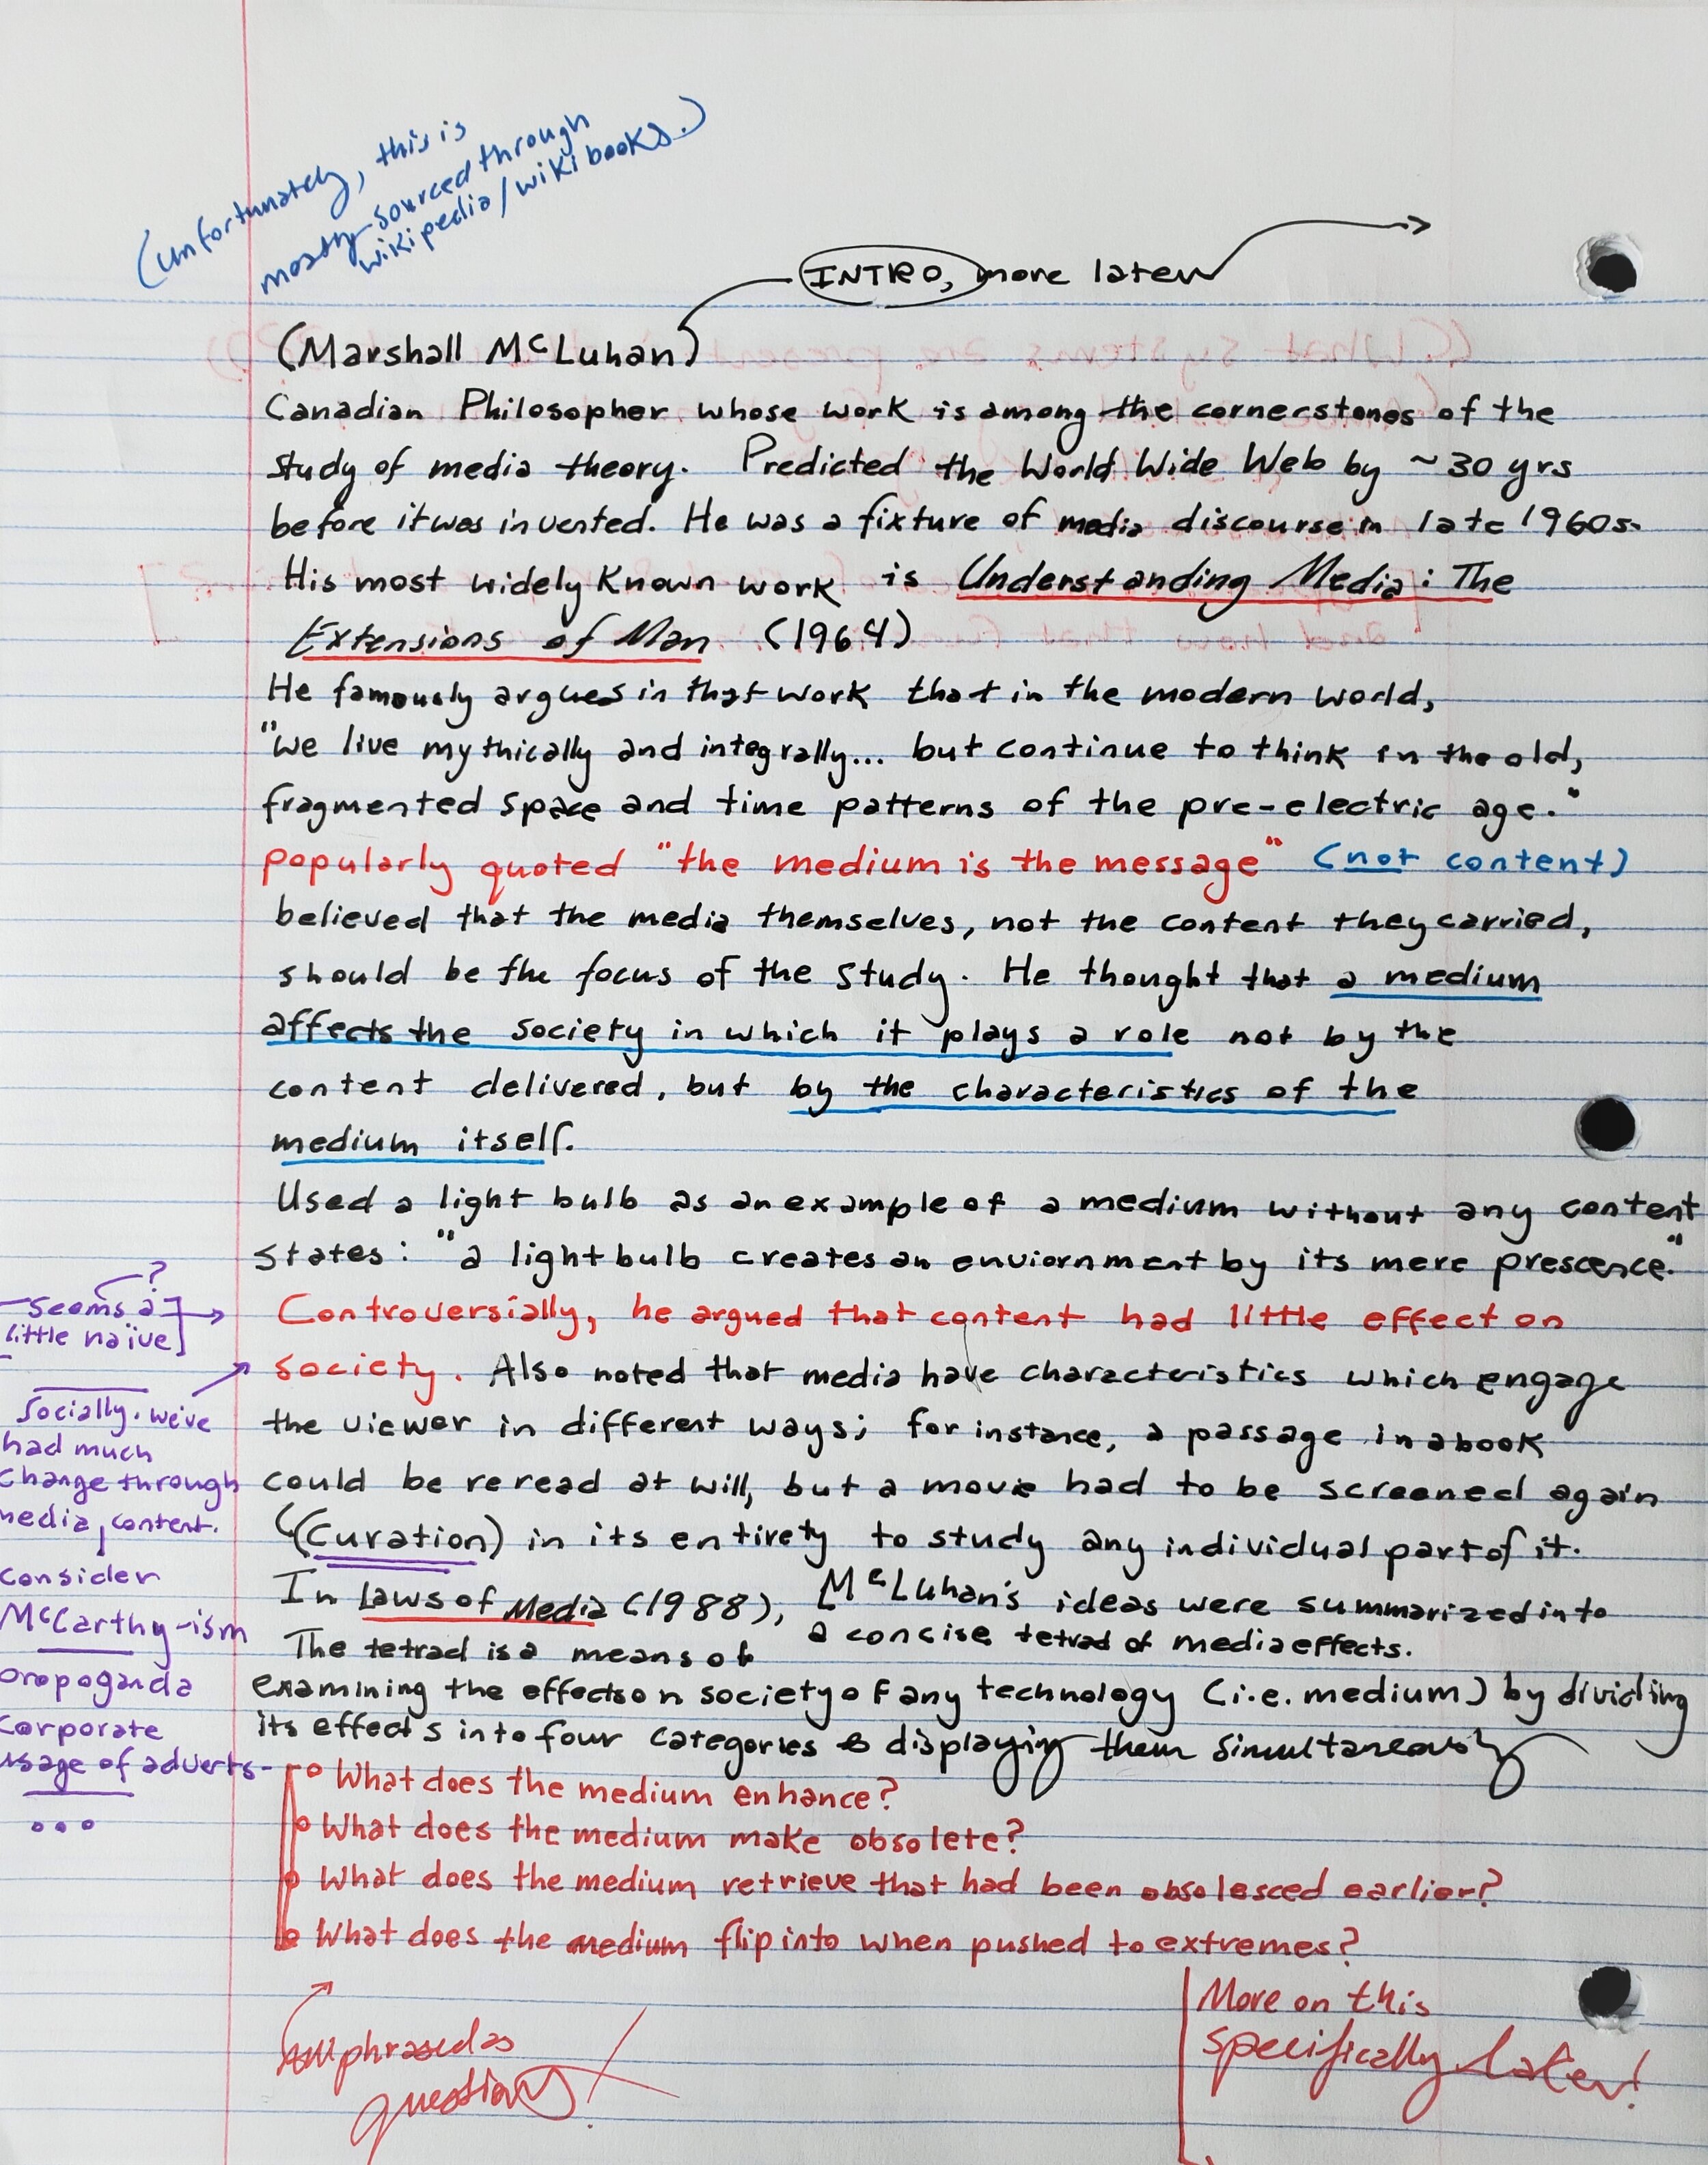 (unfortunately, this is
mostly sourced through
wikipedia/wikibooks.)
INTRO, more later
(Marshall McLuhan)
Canadian Philosopher whose work is among the cornerstones of the
study of media theory. Predicted the World Wide Web by ~30 yrs
before it was invented. He was a fixture of media discourse in late 1960s.
His most widely known work is Understanding Media: The
Extensions of Man (1964)
He famously argues in that work that in the modern world,
"we live mythically and integrally... but continue to think in the old,
fragmented space and time patterns of the pre-electric age."
popularly quoted "the medium is the message" (not content)
believed that the media themselves, not the content they carried,
should be the focus of the study. He thought that a medium
affects the society in which it plays a role not by the
content delivered, but by the characteristics of the
medium itself.
Used a light bulb as an example of a medium without any content
states: "a light bulb creates an enviornment by its mere prescence."
Controversially, he argued that content had little effect on
society. Also noted that media have characteristics which engage
the viewer in different ways; for instance, a passage in a book
could be reread at will, but a movie had to be screened again
(Curation) in its entirety to study any individual part of it.
In Laws of Media (1988), McLuhan's ideas were summarized into
a concise tetrad of media effects.
The tetrad is a means of
examining the effects on society of any technology (i.e. medium) by dividing
its effects into four categories & displaying them simultaneously
?
Seems a
little naïve
Socially. we've
had much
change through
media, content.
consider
McCarthy-ism
propoganda
corporate
usage of adverts
...
What does the medium enhance?
What does the medium make obsolete?
What does the medium retrieve that had been obsolesced earlier?
What does the medium flip into when pushed to extremes?
phrased as
questions
More on this
specifically later!